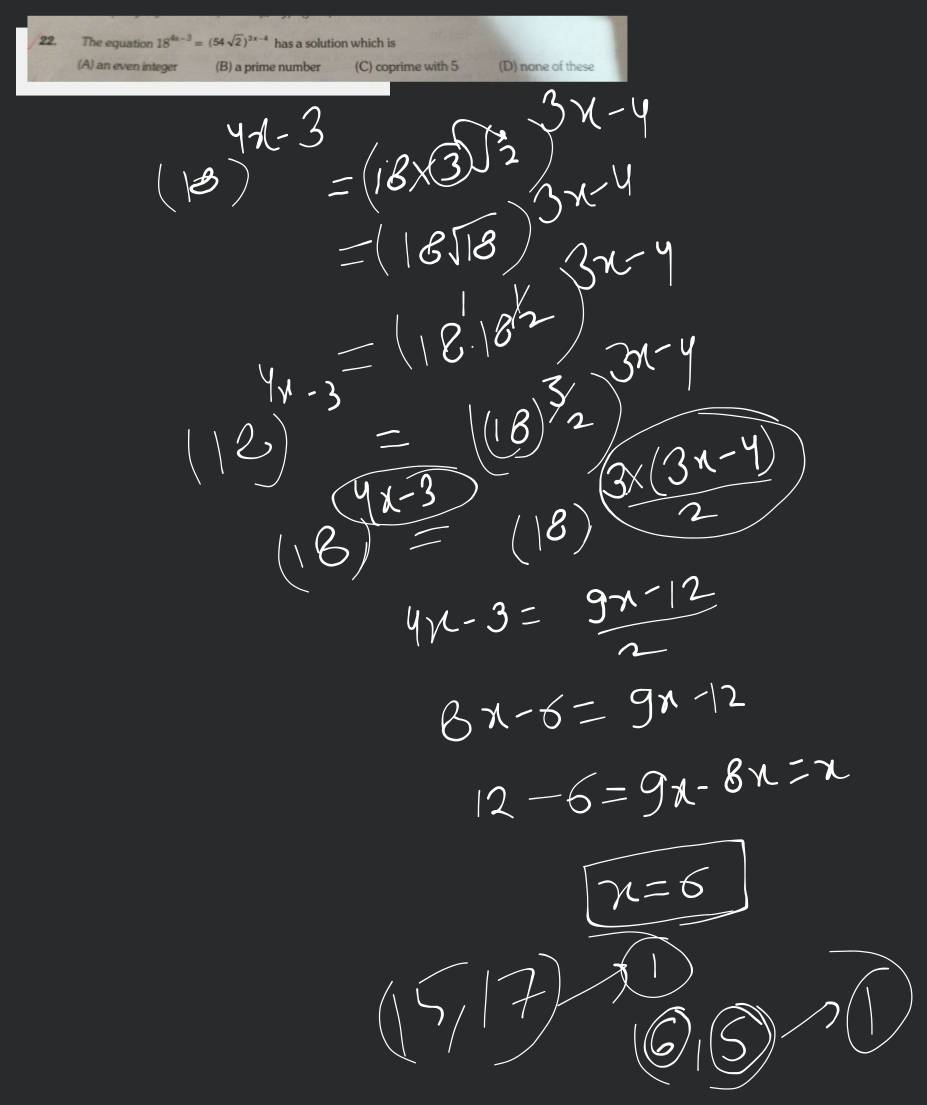 22. The equation 18^(4x-3) = (54√2)^(3x-4) has a solution which is
(A) an even integer (B) a prime number (C) coprime with 5 (D) none of these
(18)^(4x-3) = (18×3√2)^(3x-4)
=(18√18)^(3x-4)
= (18^1.18^(1/2))^(3x-4)
(18)^(4x-3) = ((18)^(3/2))^(3x-4)
(18)^(4x-3) = (18)^(3×(3x-4)/2)
4x-3 = (9x-12)/2
8x-6 = 9x-12
12-6=9x-8x=x
x=6
(15,17) → 1
(6,5) → 1